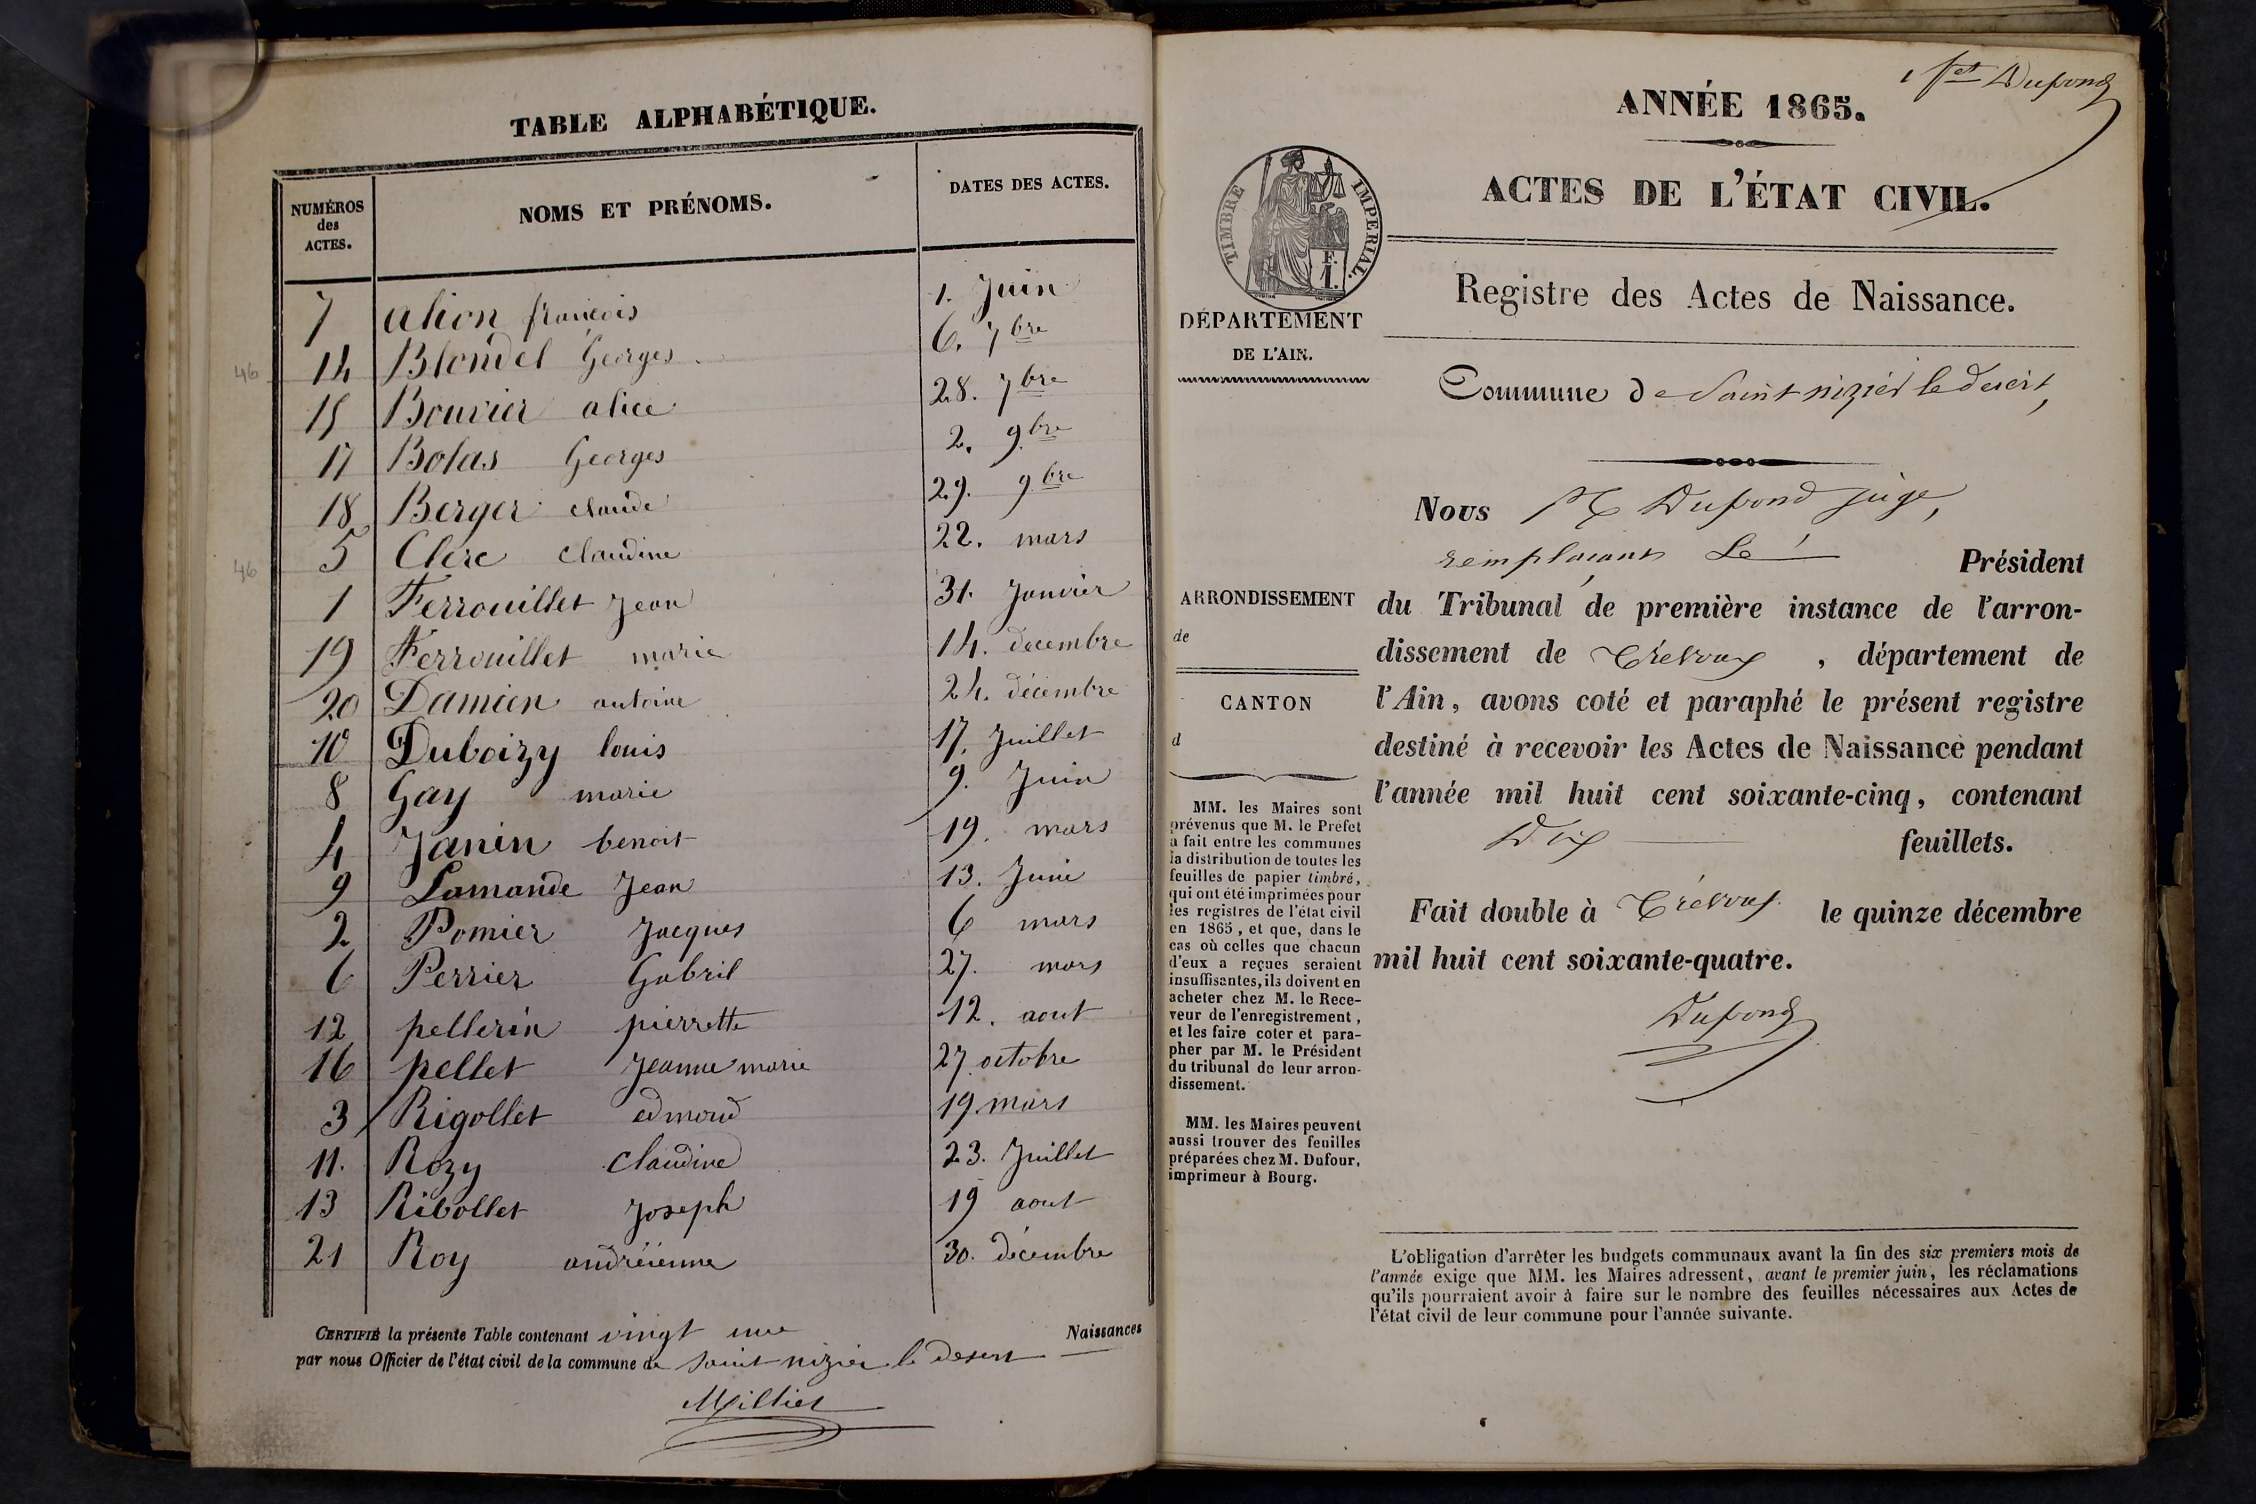 TABLE ALPHABÉTIQUE.
NUMÉROS des ACTES. NOMS ET PRÉNOMS. DATES DES ACTES.
7 alion francois 1. Juin
46 14 Blondel Georges 6. 7bre
15 Bouvier alice 28. 7bre
17 Bolas Georges 2. 9bre
18 Berger claude 29. 9bre
46 5 Clerc claudine 22. mars
1 Ferrouillet Jean 31. Janvier
19 Ferrouillet marie 14. decembre
20 Damien antoine 24. décembre
10 Duboizy louis 17. Juillet
8 Gay marie 9. Juin
4 Janin benoit 19. mars
9 Lamande Jean 13. Juin
2 Pomier Jacques 6 mars
6 Perrier Gabril 27. mars
12 pellerin pierrette 12. aout
16 pellet Jeanne marie 27 octobre
3 Rigollet edmond 19 mars
11. Rozy Claudine 23. Juillet
13 Ribollet Joseph 19 aout
21 Roy andréienne 30. décembre
CERTIFIÉ la présente Table contenant vingt une Naissances
par nous Officier de l'état civil de la commune de saint nizier le desert
Millier
1 fet Dupond
ANNÉE 1865.
ACTES DE L'ÉTAT CIVIL.
TIMBRE IMPERIAL.
F.
1.
DÉPARTEMENT
DE L'AIN.
Registre des Actes de Naissance.
Commune de Saint nizier le desert,
Nous Dupond juge,
remplaçant Le Président
du Tribunal de première instance de l'arron-
dissement de Trévoux, département de
l'Ain, avons coté et paraphé le présent registre
destiné à recevoir les Actes de Naissance pendant
l'année mil huit cent soixante-cinq, contenant
Dix feuillets.
Fait double à Trévoux le quinze décembre
mil huit cent soixante-quatre.
Dupond
ARRONDISSEMENT
de
CANTON
d
MM. les Maires sont
prévenus que M. le Préfet
a fait entre les communes
la distribution de toutes les
feuilles de papier timbré,
qui ont été imprimées pour
les registres de l'état civil
en 1865, et que, dans le
cas où celles que chacun
d'eux a reçues seraient
insuffisantes, ils doivent en
acheter chez M. le Rece-
veur de l'enregistrement,
et les faire coter et para-
pher par M. le Président
du tribunal de leur arron-
dissement.
MM. les Maires peuvent
aussi trouver des feuilles
préparées chez M. Dufour,
imprimeur à Bourg.
L'obligation d'arrêter les budgets communaux avant la fin des six premiers mois de
l'année exige que MM. les Maires adressent, avant le premier juin, les réclamations
qu'ils pourraient avoir à faire sur le nombre des feuilles nécessaires aux Actes de
l'état civil de leur commune pour l'année suivante.